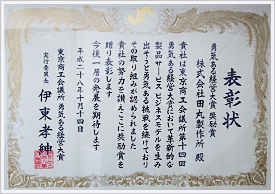 表彰状
勇気ある経営大賞 奨励賞
株式会社田丸製作所 殿
貴社は東京商工会議所第十四回
勇気ある経営大賞において革新的な
製品サービス ビジネスモデルを生み
出そうと勇気ある挑戦を続けており
その取り組みが認められました
貴社の努力を讃えここに奨励賞を
贈り表彰します
今後一層の発展を期待します
平成二十八年十月十四日
東京商工会議所 勇気ある経営大賞
実行委員長 伊東孝紳